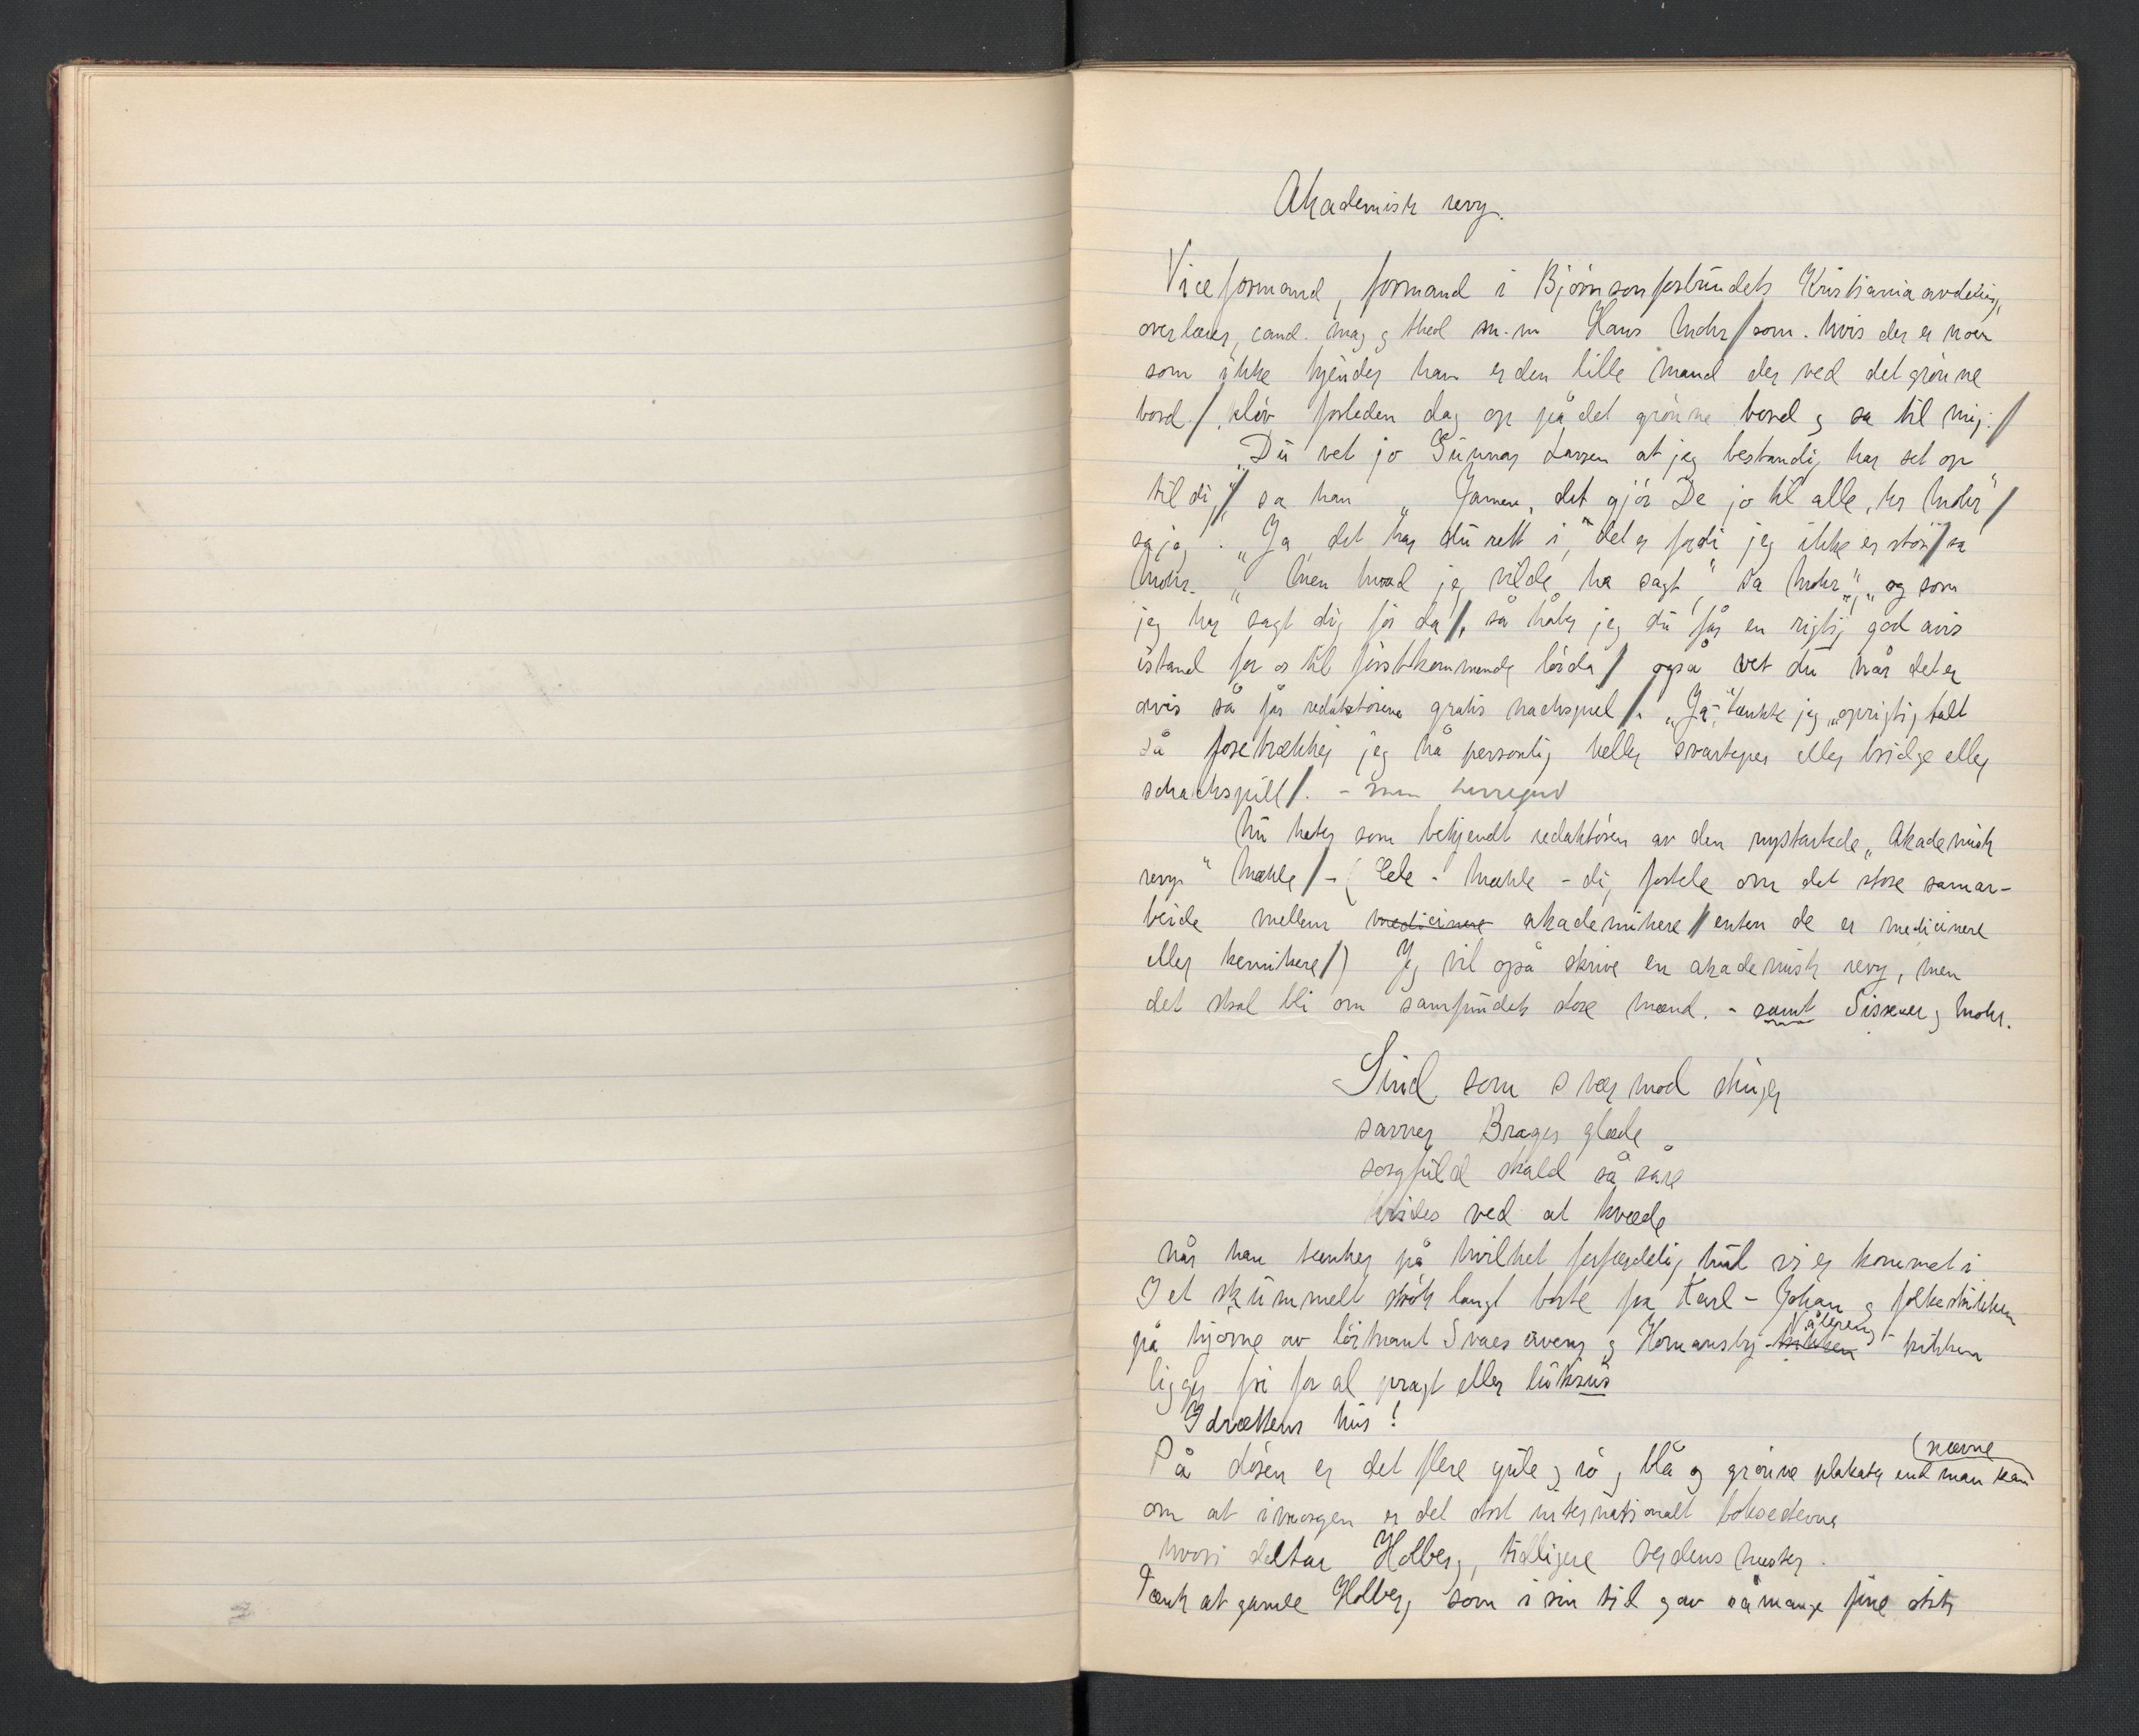 Akademisk revy.
Viceformand, formand i Bjørnsonforbundets Kristianiaavdeling,
overlærer, cand. mag og theol m.m Hans Mohr / som. hvis der er noen
som ikke kjender ham er den lille mand der ved det grønne
bord /, kløv forleden dag op på det grønne bord og sa til mig: /
„Du vet jo Gunnar Larsen at jeg bestandig har set op
til dig,“ / sa han „Jamen, det gjør De jo til alle, hr Mohr“ /
sa jeg. „Ja det har du rett i, det er fordi jeg ikke er stor“ / sa
Mohr. „Men hvad jeg vilde ha sagt,“ sa Mohr, „og som
jeg har sagt dig før da /, så håber jeg du får en rigtig god avis
istand for os til førstkommende lørda / også vet du når det er
avis så får redaktørene gratis nachspiel /. „Ja“, tænkte jeg „oprigtig talt
så foretrækker jeg nå personlig heller svarteper eller bridge eller
schachspill /. – men herregud
Nu heter som bekjendt redaktøren av den nystartede „Akademisk
revy“ Mæhle / – (Ede - Mæhle - di, fortele om det store samar-
beide mellem medicinere akademikere / enten de er medicinere
eller kemikere /) Jeg vil også skrive en akademisk revy, men
det skal bli om samfundets store mænd. – samt Sissener og Mohr.
Sind som svermod skuger
savner Brages glæde
sorgfuld skald så såre
vrides ved at kvæde
når han tenker på hvilket forferdelig hul vi er kommet i
I et skummelt strøk langt borte fra Karl-Johan og folkeskikken
på hjørne av løitnant Svaes aveny og Homansby- kirken Vålereng- kirken
ligger fri for al pragt eller luksus
Idrættens hus!
På døren er det flere gule og rø, blå og grønne plakater end man kan (nævne
om at imorgen er det stort internationalt boksestevne
hvori deltar Holberg, tidligere verdensmester.
Tænk at gamle Holberg, som i sin tid gav så mange fine stik